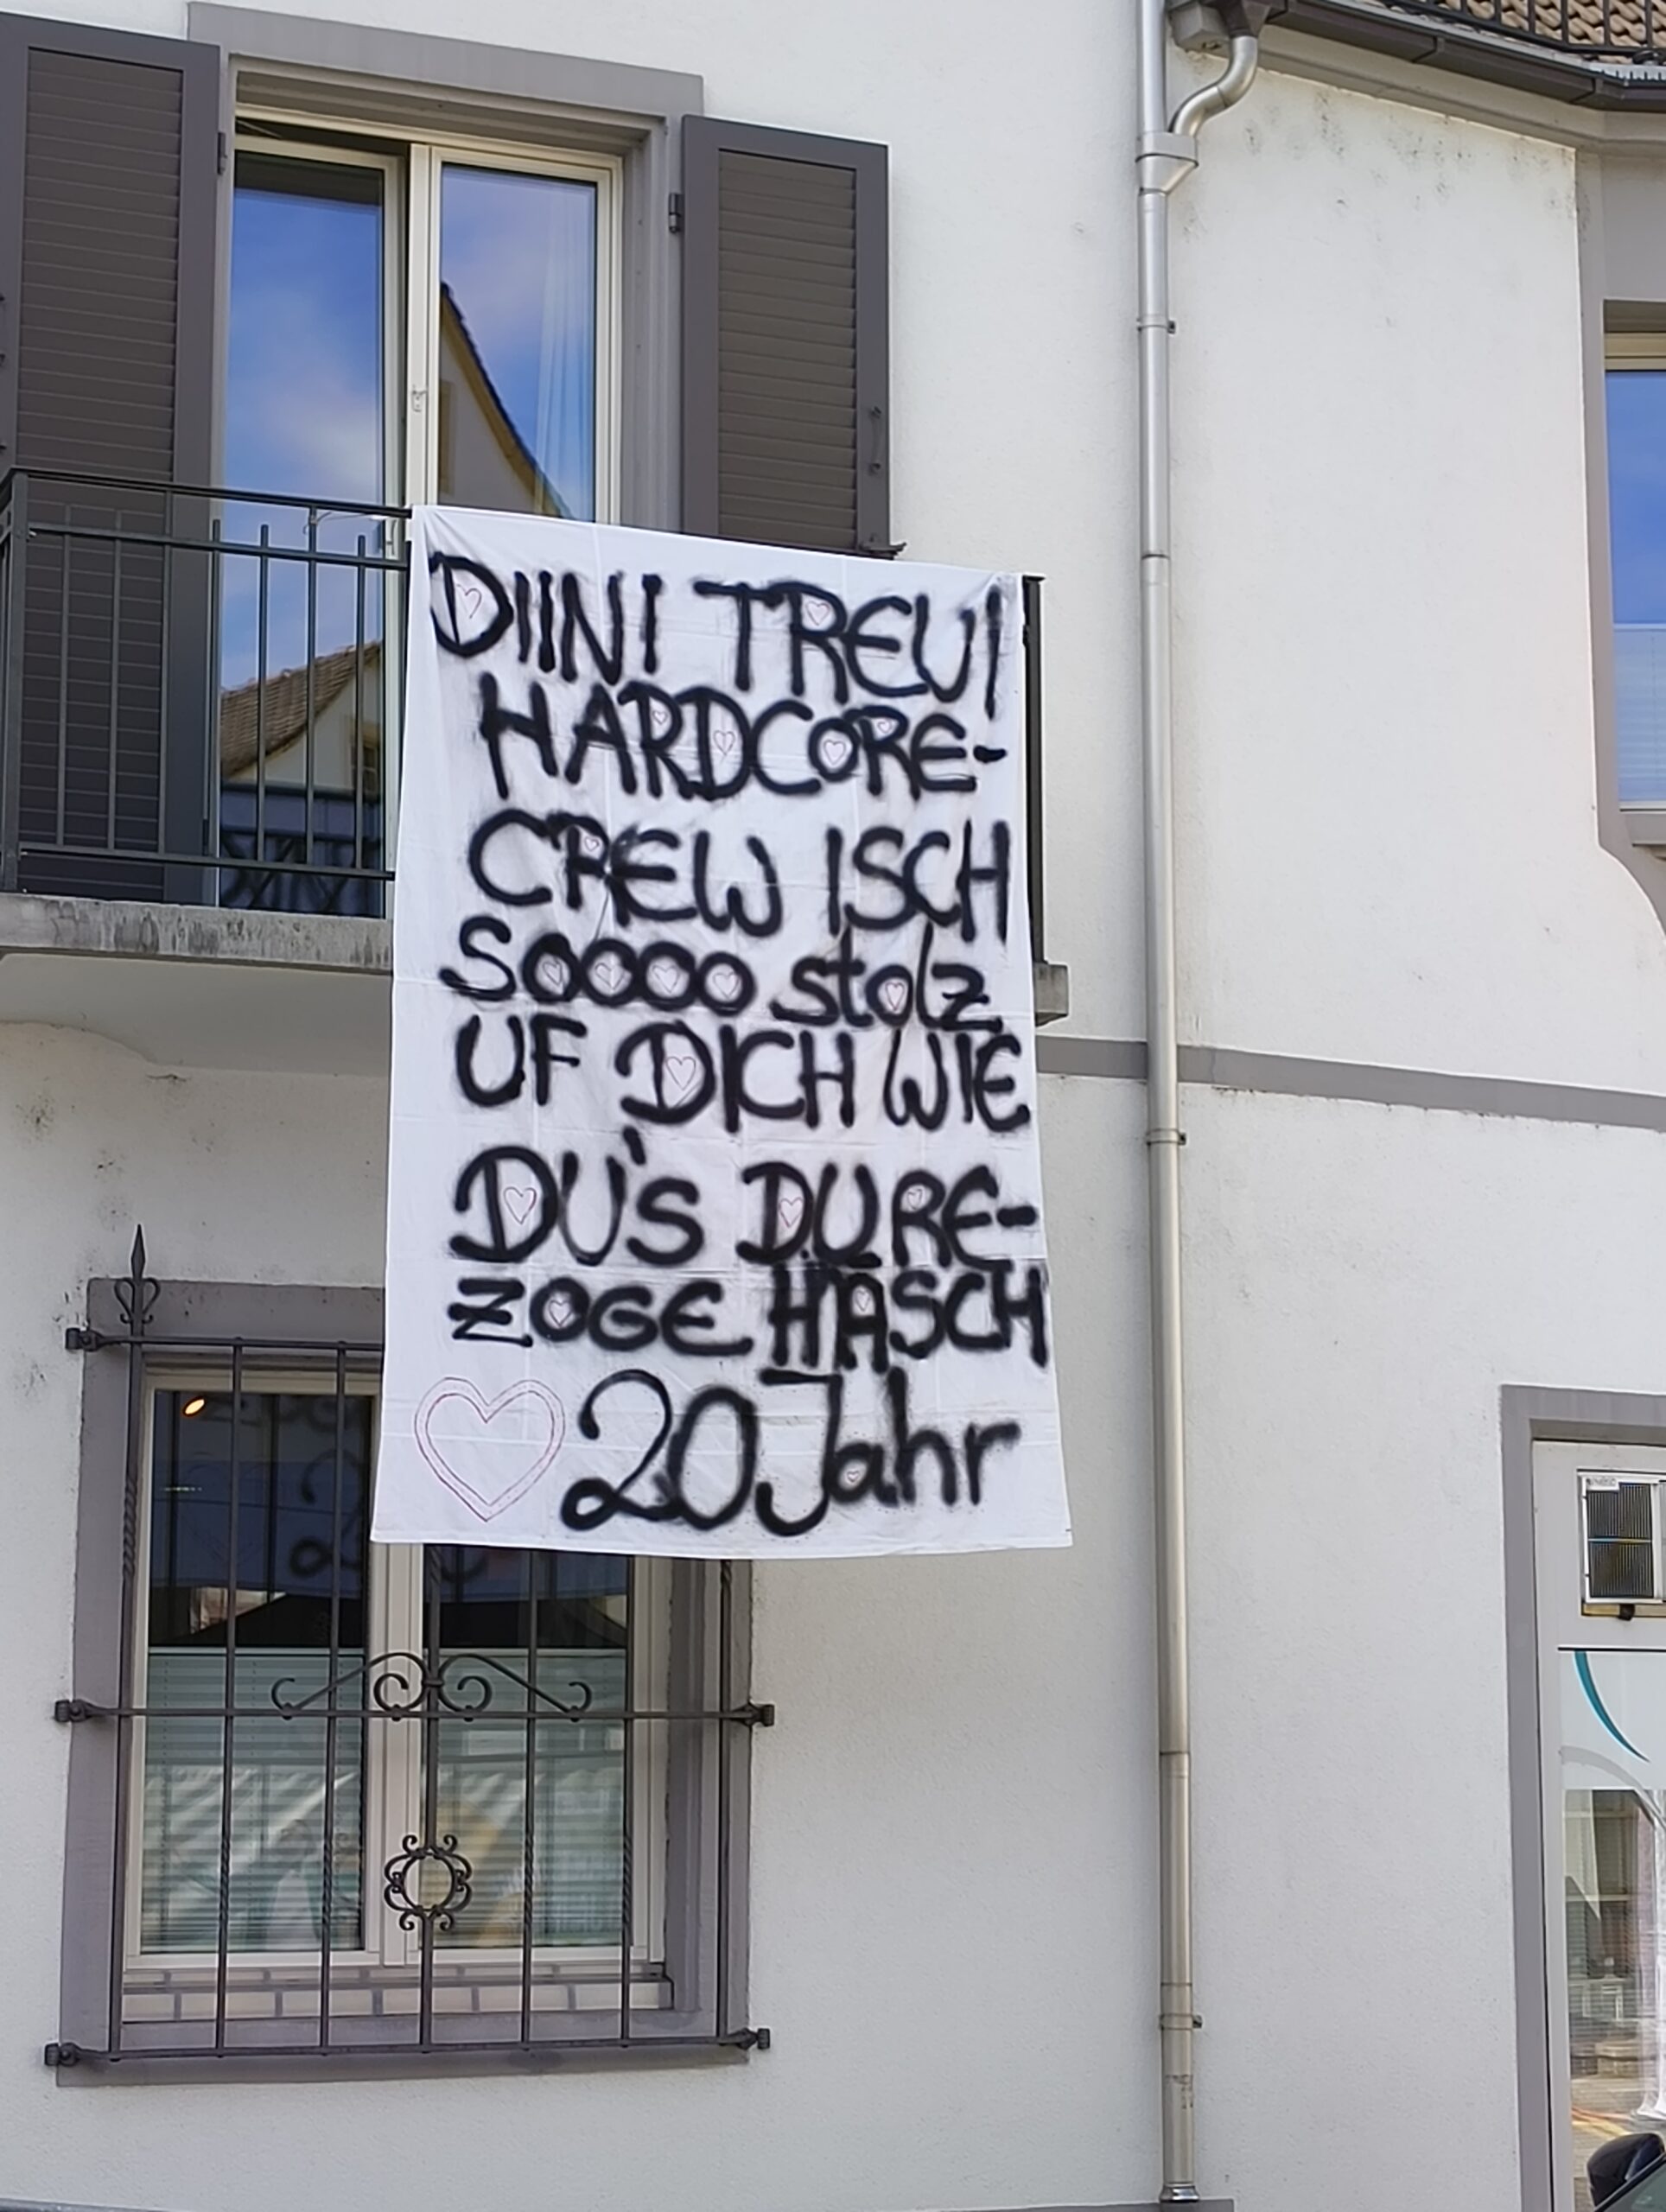 DIINI TREUI
HARDCORE-
CREW ISCH
Soooo stolz
UF DICH WIE
DU'S DURE-
ZOGE HÄSCH
20 Jahr